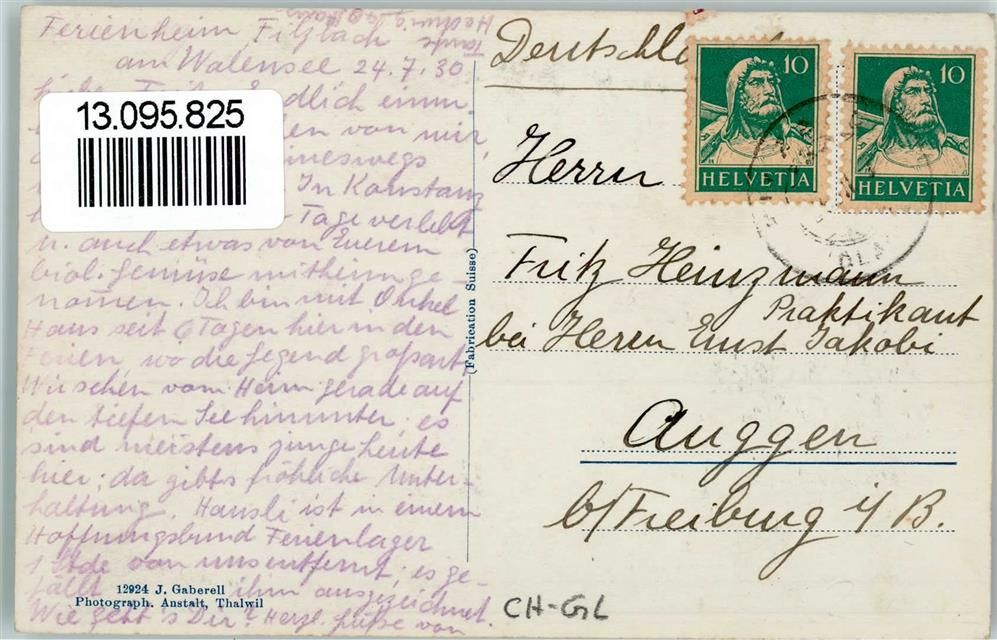 Ferienheim, Filzbach
am Walensee 24.7.30
endlich einm
von mir,
keineswegs
In Konstanz
Tage verlebt
u. auch etwas von Eurem
biol. Gemüse mitheimge-
nommen. Ich bin mit Onkel
Hans seit 6 Tagen hier in den
Ferien, wo die Gegend großart.
Wir sehen vom Heim gerade auf
den tiefen See hinunter, es
sind meistens junge Leute
hier; da gibt's fröhliche Unter-
haltung. Hansli ist in einem
Hoffnungsbund Ferienlager
1 Stde von uns entfernt; es ge-
fällt ihm ausgezeichnet.
Wie geht's Dir? Herzl. Grüße von
Tante
Hedwig
13.095.825
12924 J. Gaberell
Photograph. Anstalt, Thalwil
(Fabrication Suisse)
10
HELVETIA
10
HELVETIA
Herrn
Fritz Heinzmann
Praktikant
bei Herrn Ernst Jakobi
Auggen
b/Freiburg i/B.
CH-GL